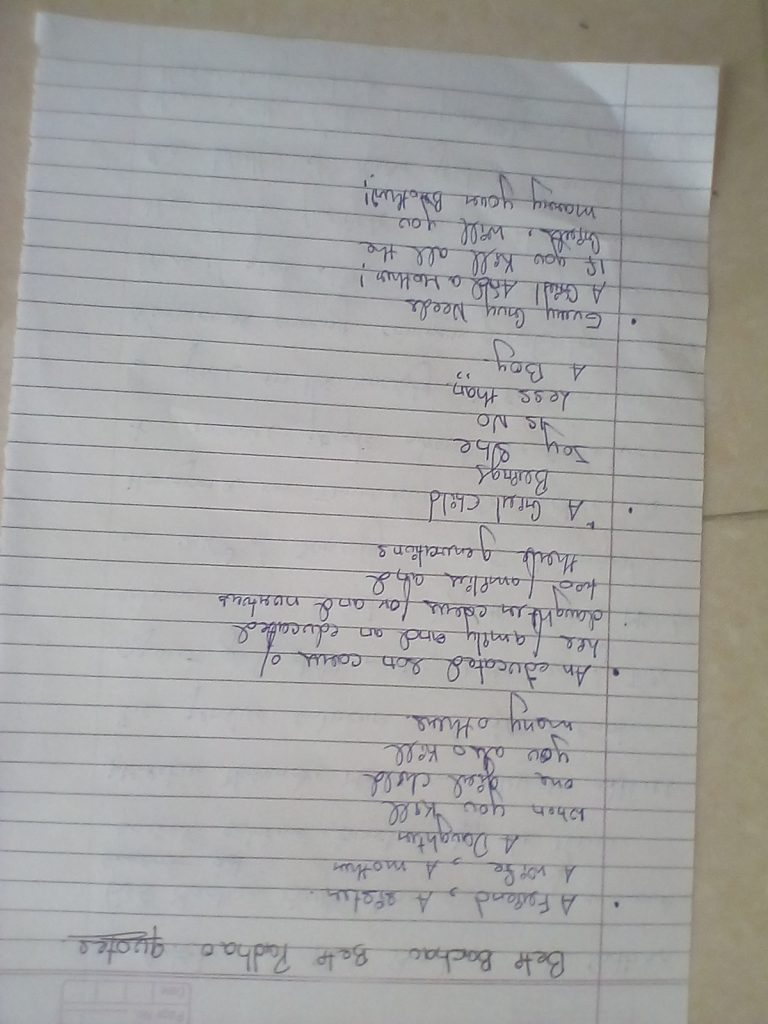 Page No.
Date
Beti Bachao Beti Padhao quotes
• A Friend, A sister
A wife, A mother
A Daughter
when you kill
one girl child
you also kill
many others.
• An educated son cares of
her family and an educated
daughter cares for and nurtures
two families and
their generations
• A Girl child
Beings
Joy she
Is No
Less than
A Boy
• Every Guy Needs
A Girl And a Mother!
If you kill all the
Girls, will you
marry your Brother!